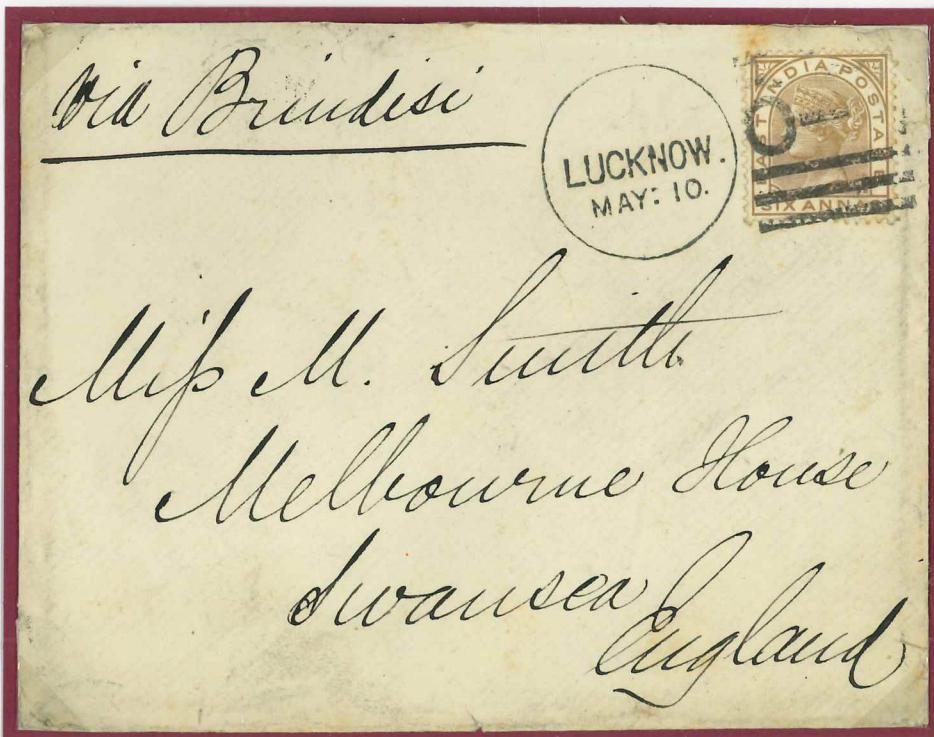 Via Brindisi
LUCKNOW.
MAY: 10.
EAST INDIA POSTAGE
SIX ANNAS
Miss M. Smith
Melbourne House
Swansea
England